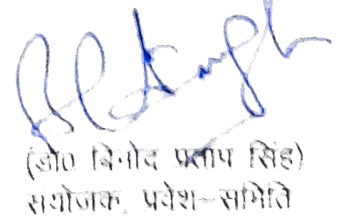 (डॉ0 बिनोद प्रताप सिंह)
संयोजक, प्रवेश-समिति